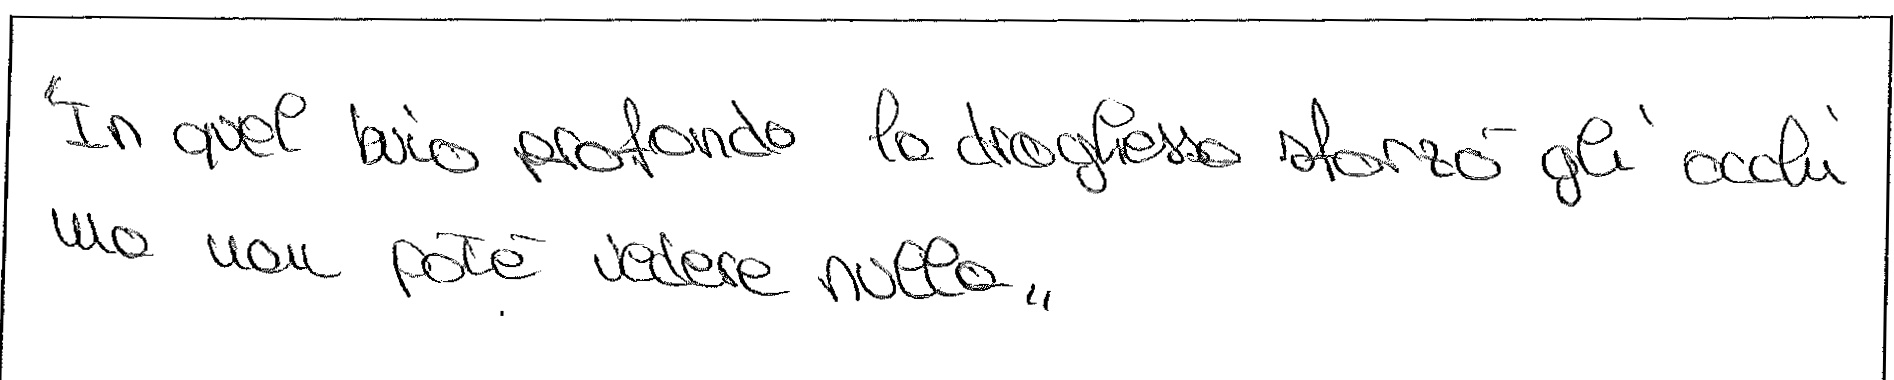 "In quel buio profondo la draghessa sforzò gli occhi
ma non potè vedere nulla„